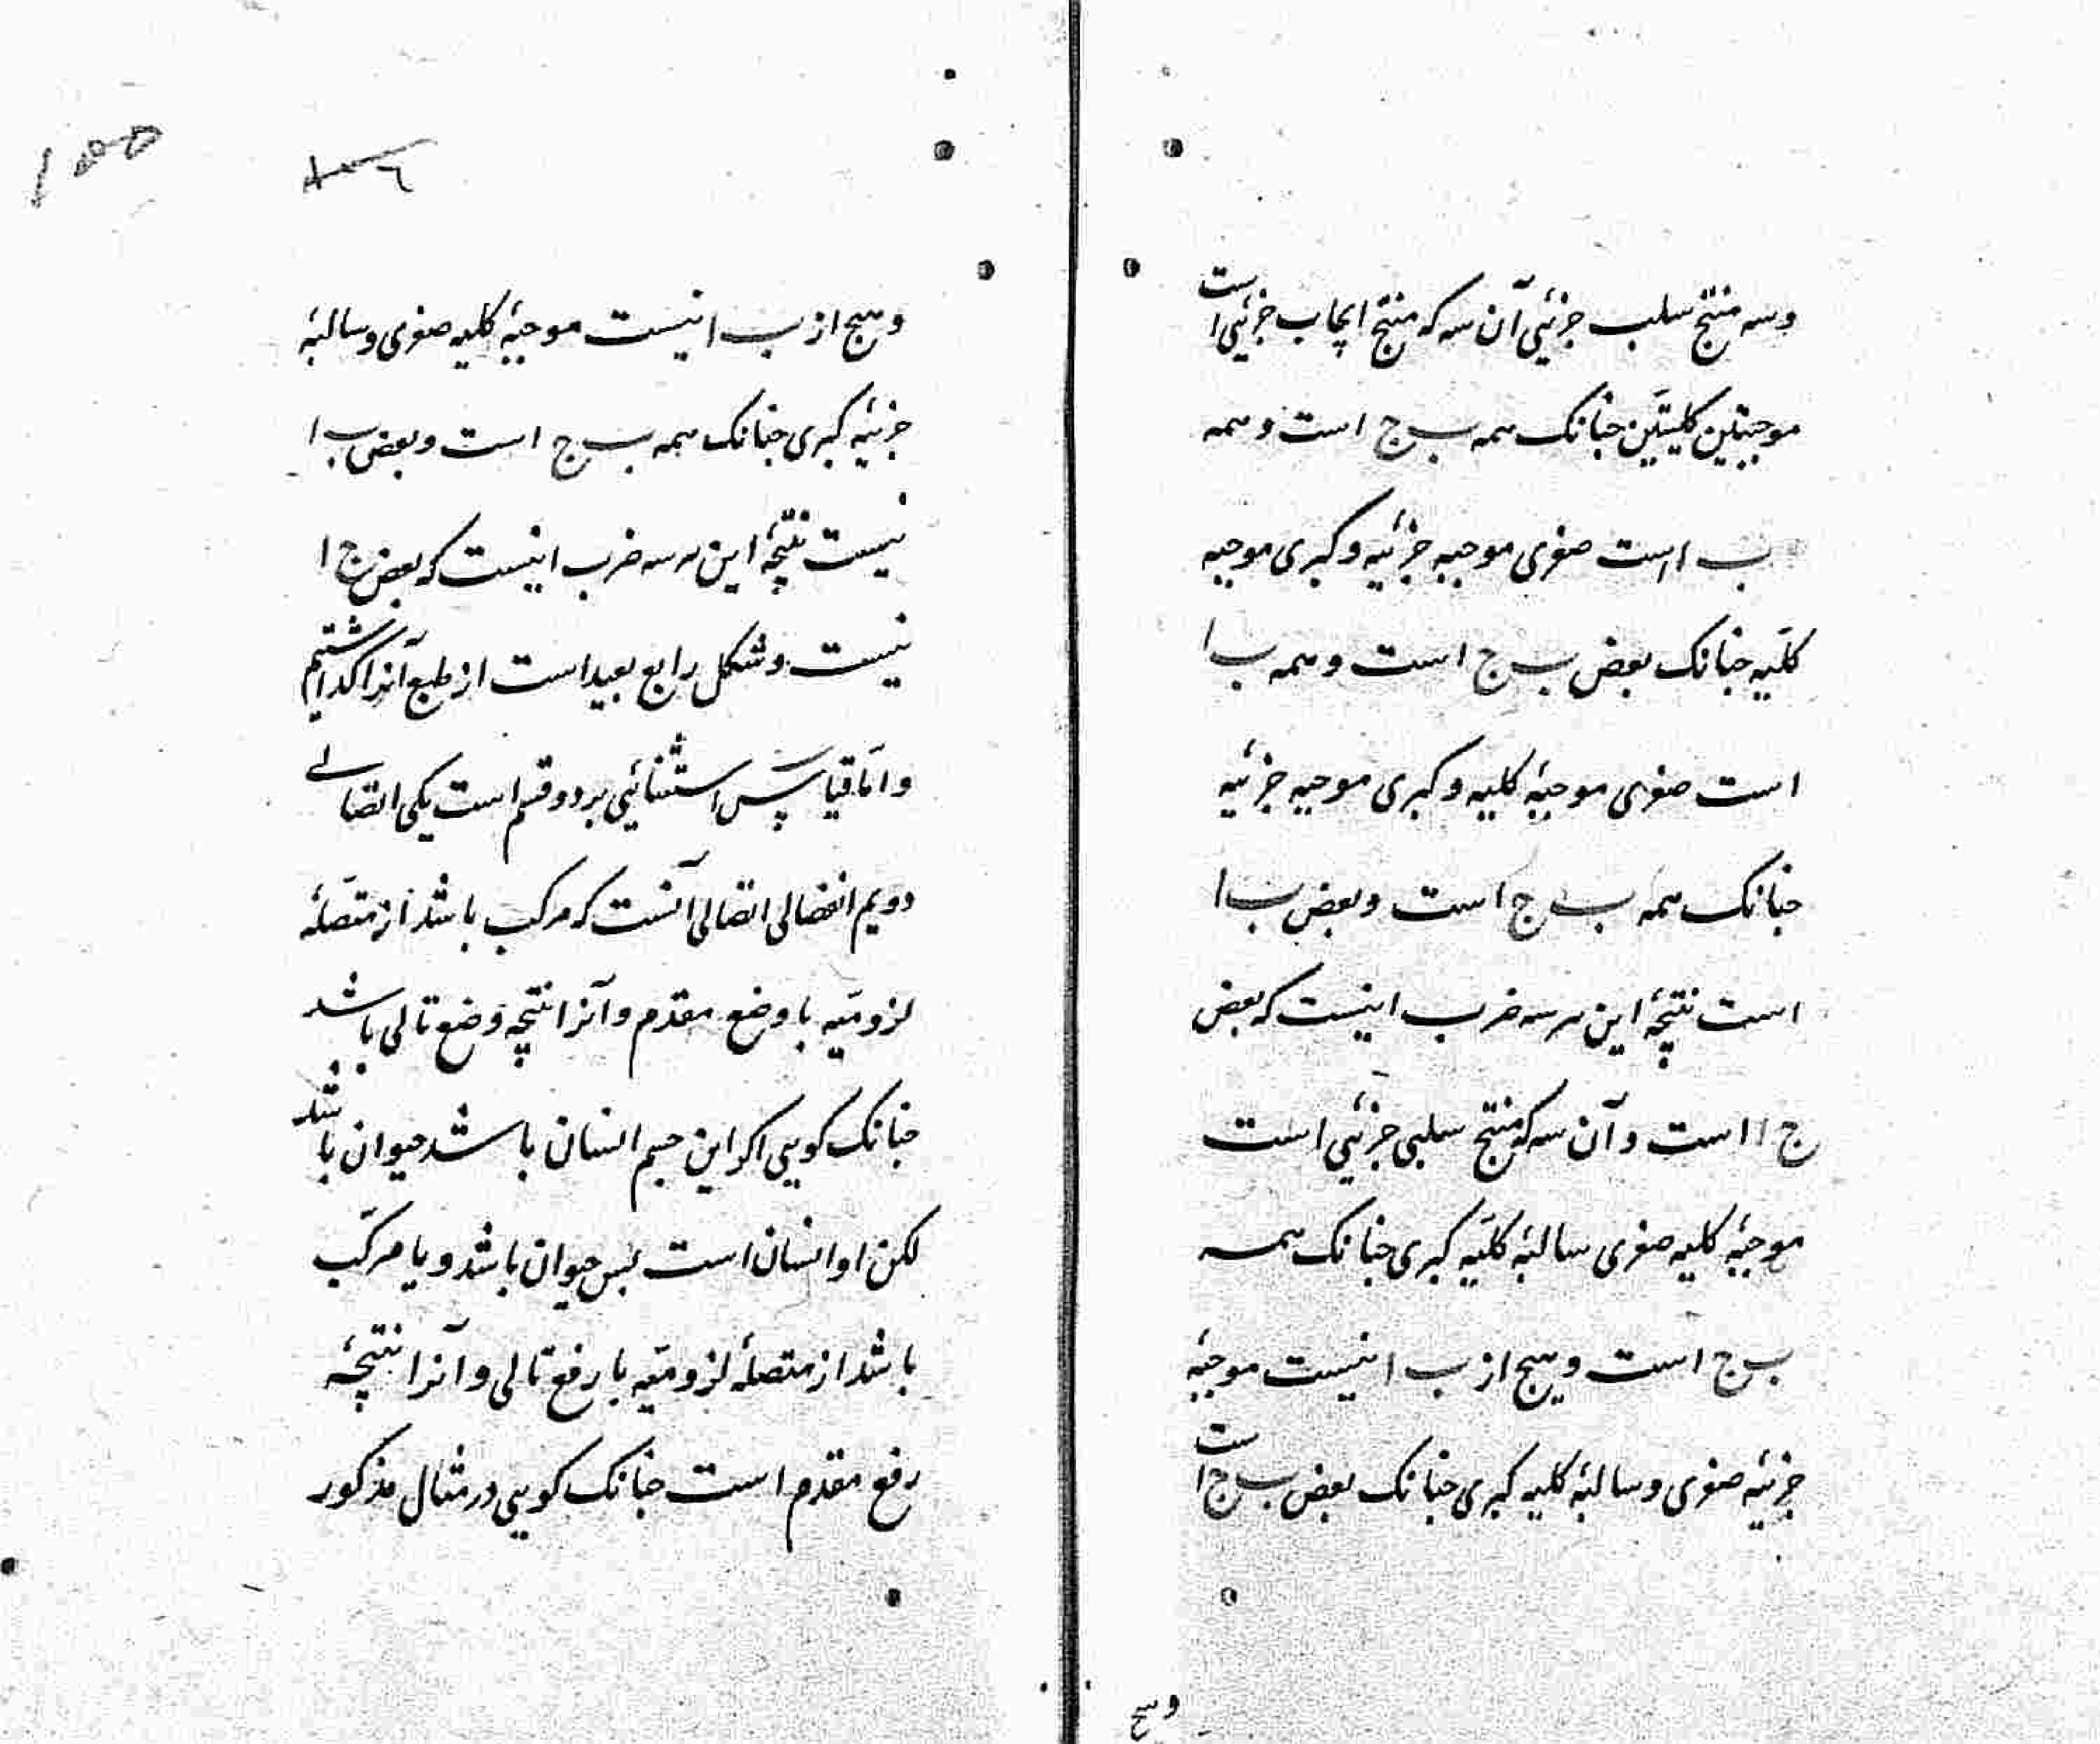 وسه منتج سلب جزئی آن سه که منتج ایجاب جزئی است
موجبتین کلیتین چنانک همه ب ج است و همه
ب ا است صغری موجبه جزئیه و کبری موجبه
کلیه چنانک بعض ب ج است و همه ب ا
است صغری موجبهٔ کلیه و کبری موجبه جزئیه
چنانک همه ب ج است و بعض ب ا
است نتیجهٔ این هر سه ضرب اینست که بعض
ج ا است و آن سه که منتج سلبی جزئی است
موجبهٔ کلیه صغری سالبهٔ کلیه کبری چنانک همه
ب ج است و هیچ از ب ا نیست موجبهٔ
جزئیه صغری و سالبهٔ کلیه کبری چنانک بعض ب ج است
و هیچ
و هیچ از ب ا نیست موجبهٔ کلیه صغری و سالبهٔ
جزئیه کبری چنانک همه ب ج است و بعض ب ا
نیست نتیجهٔ این هر سه ضرب اینست که بعض ج ا
نیست و شکل رابع بعید است از طبع آنرا گذاشتیم
و اما قیاس استثنائی بر دو قسم است یکی اتصالی
دویم انفصالی اتصالی آنست که مرکب باشد از متصلهٔ
لزومیه با وضع مقدم و آنرا نتیجه وضع تالی باشد
چنانک کویی اکر این جسم انسان باشد حیوان باشد
لکن او انسان است پس حیوان باشد و یا مرکب
باشد از متصلهٔ لزومیه با رفع تالی و آنرا نتیجهٔ
رفع مقدم است چنانک کویی در مثال مذکور